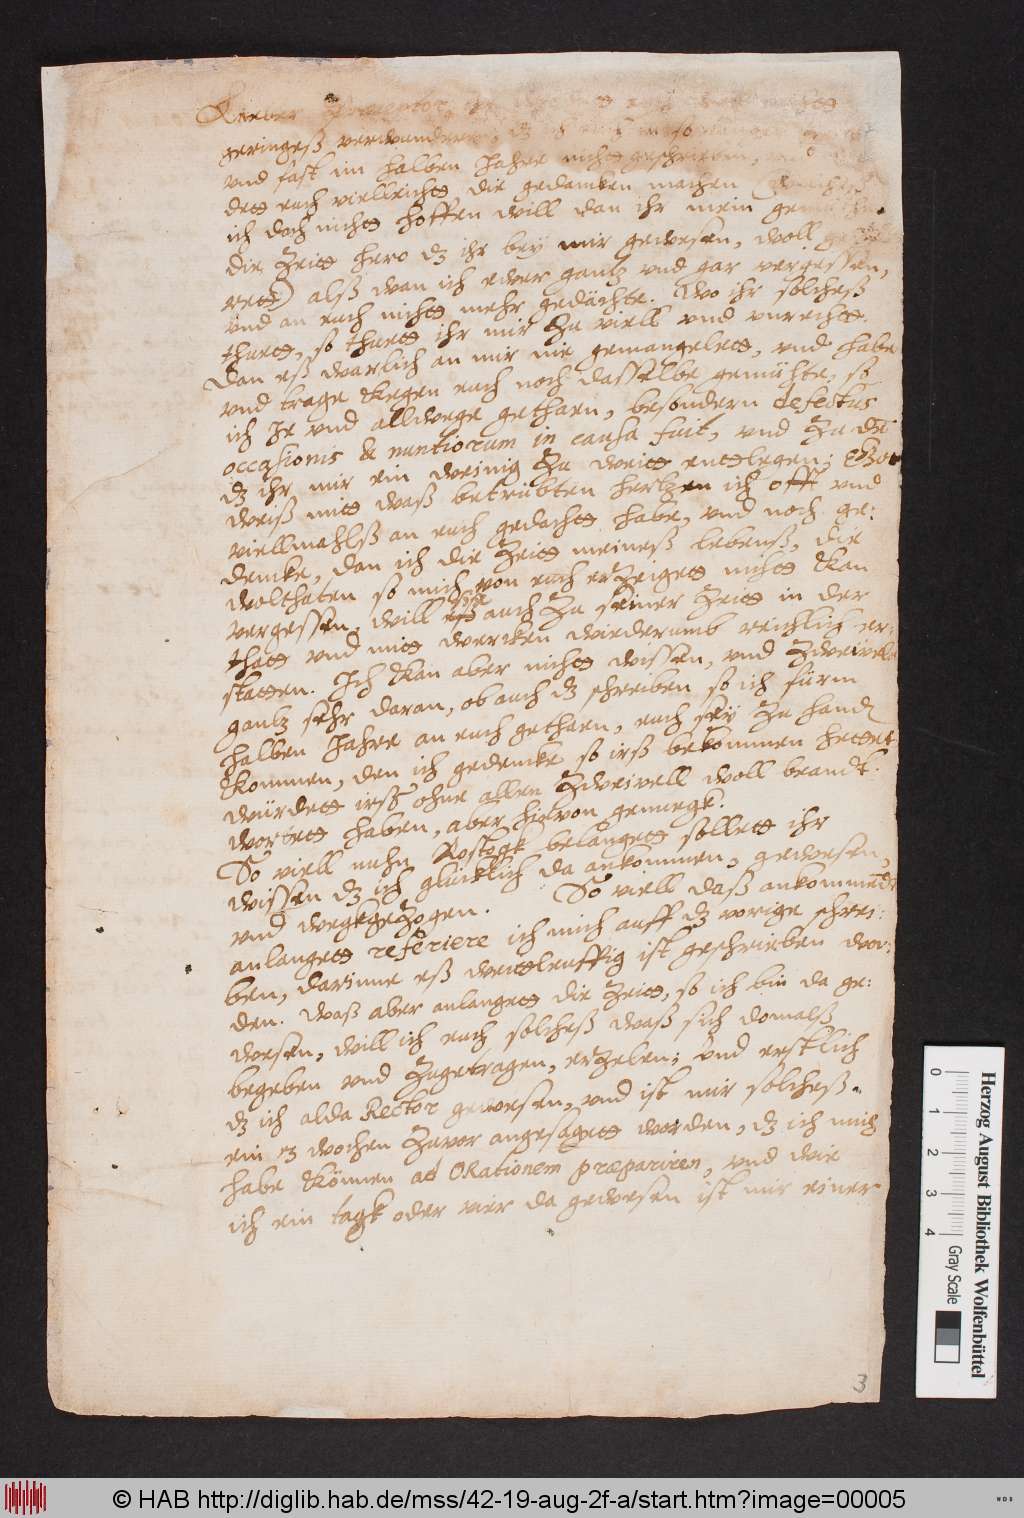 Lieber Præceptor,
geringeß verwunderen, dz ich euch in so
vnd fast im halben Jahre nichts geschrieben,
dett euch vielleichts die gedancken machen
ich doch nichts hoffen will dan ihr mein
die Zeitt hero dz ihr bey mir gewesen, woll
rett) alß wan ich ewer gantz vnd gar vergessen,
vnd an euch nichts mehr gedächte. Wo ihr solcheß
thutt, so thutt ihr mir zu viell vnd vnrechtt.
Dan eß warlich an mir nie gemangelett, vnd habe
vnd trage kegen euch noch dasselbe gemühte, so
ich Je vnd allwege gethaen, besondern defectus
occasionis & nuntiorum in causa fuit, vnd zu de
dz ihr mir ein weinig zu weitt entlegen; Gott
weiß mitt waß betrübten hertzen ich offt vnd
viellmahlß an euch gedachtt habe, vnd noch ge:
dencke, dan ich die Zeitt meineß lebenß, die
wolthaten so mich von euch erzeiget nichtt kan
vergessen, will auch zu seiner Zeitt in der
thatt vnd mitt wercken wiederumb reichlich er:
statten. Ich kan aber nichtt wissen, vnd zweivele
gantz sehr daran, ob auch dz schreiben so ich fürm
halben Jahre an euch gethaen, euch sey zu handt
kommen, den ich gedencke so irß bekommen hettet
würdett irß ohne allen zweivell woll beandt:
wortett haben, aber hievon genuegk.
So viell nuhn Rostogk belangett sollett ihr
wissen dz ich glücklich da ankommen, gewesen,
vnd wegkgezogen. So viell daß ankommend
anlangett referiere ich mich auff dz vorige schrei:
ben, darinne eß weitleuffig ist geschrieben wor:
den. Waß aber anlangett die Zeitt, so ich bin da ge:
wesen, will ich euch solcheß waß sich domalß
begeben vnd zugetragen, erzelen; vnd erstlich
dz ich alda Rector gewesen, vnd ist mir solcheß
ein 3 wochen zuvor angesagett worden, dz ich mich
habe können ad Orationem præpariren, vnd wie
ich ein tagk oder vier da gewesen ist mir einer
3
Herzog August Bibliothek Wolfenbüttel
0 1 2 3 4 Gray Scale
© HAB http://diglib.hab.de/mss/42-19-aug-2f-a/start.htm?image=00005